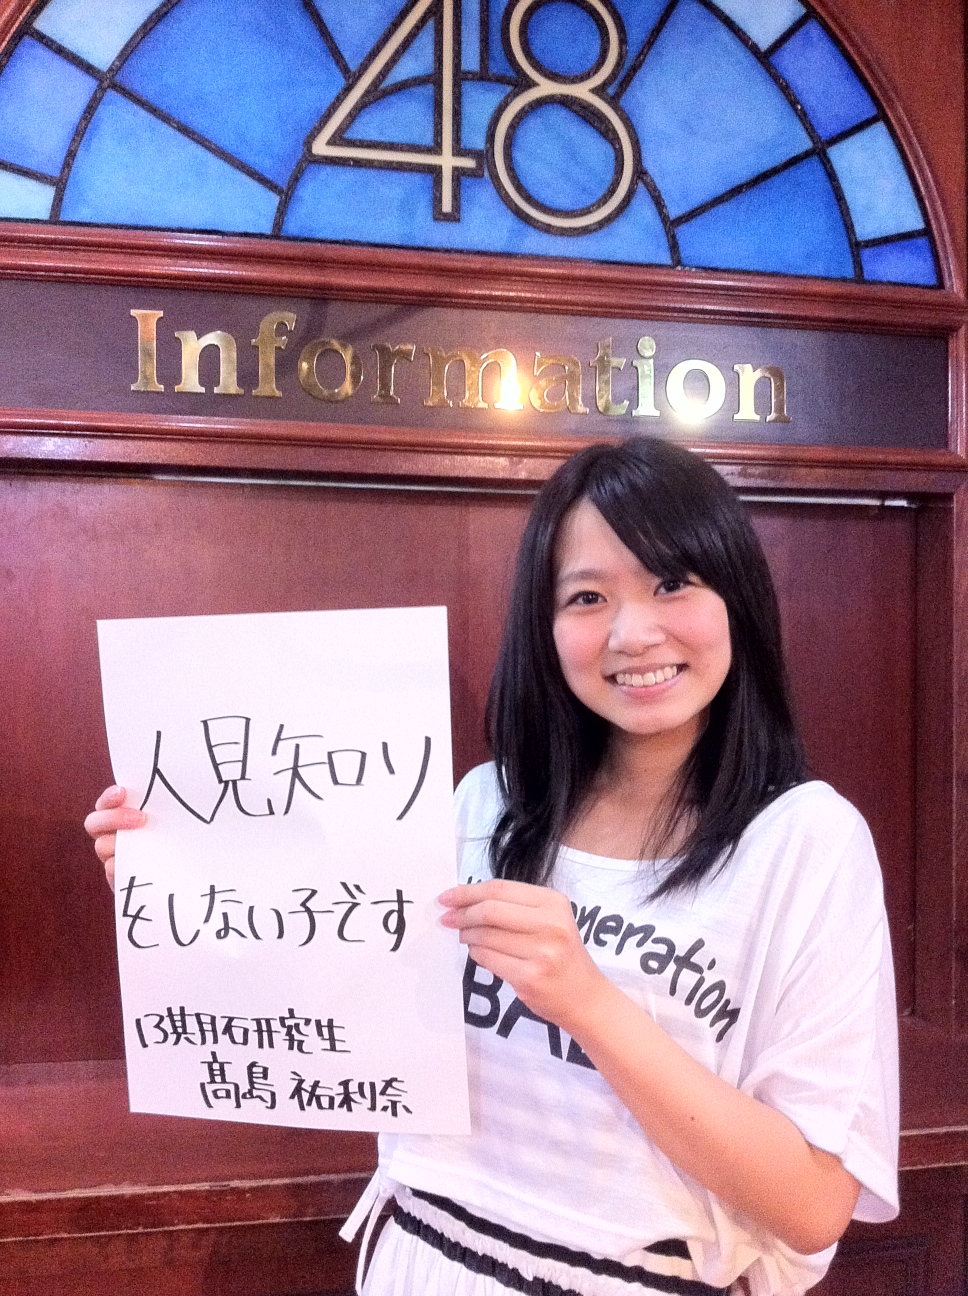 48
Information
人見知り
をしない子です
13期研究生
髙島 祐利奈
eneration
BA